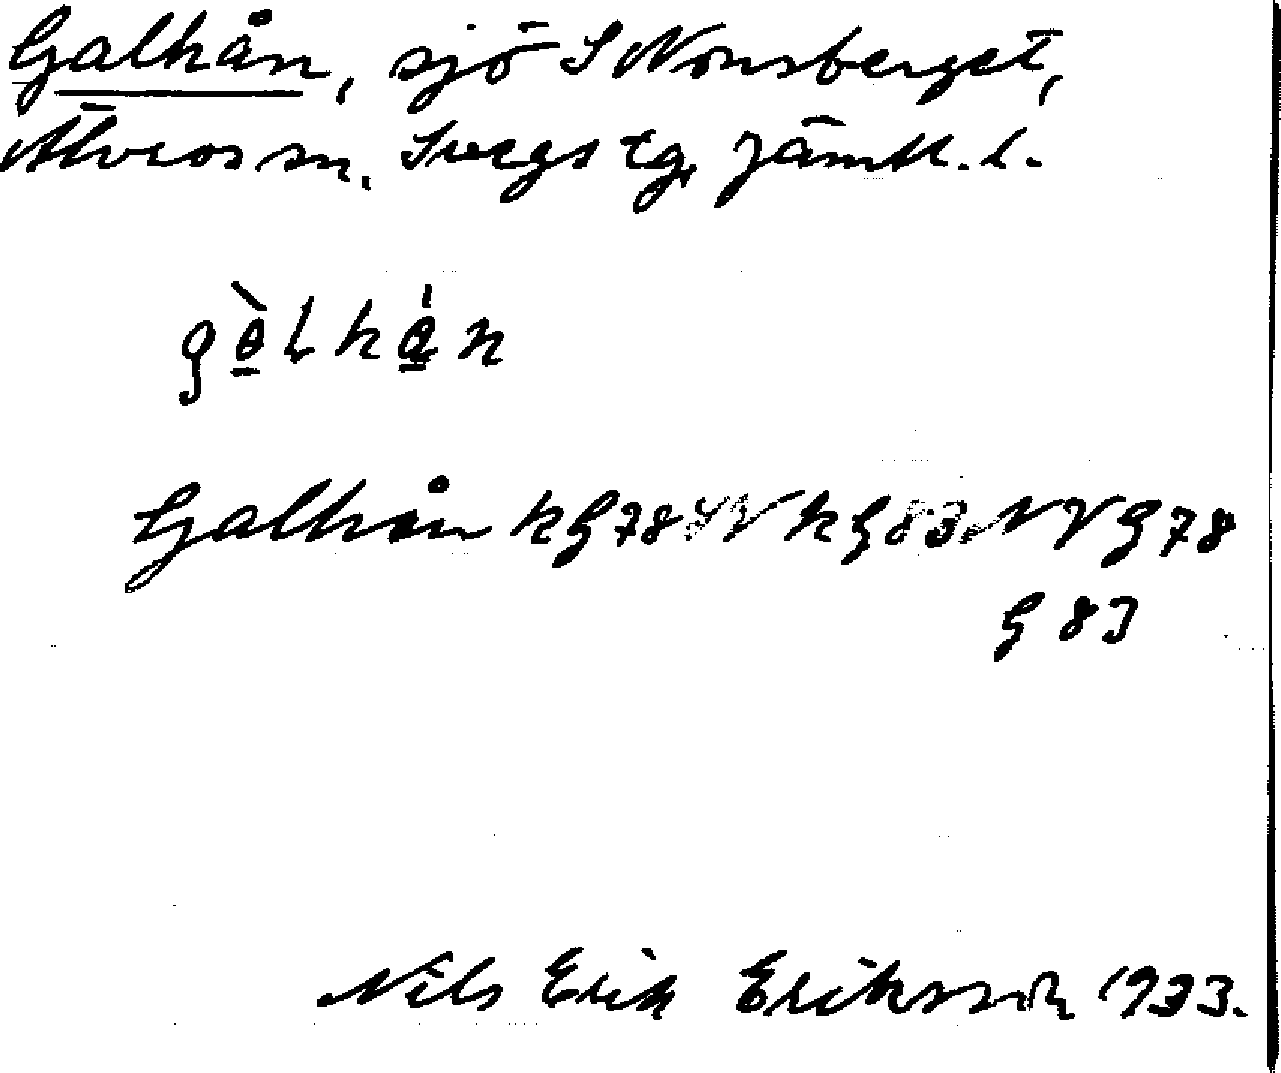 Galhån, sjö S Nonsberget,
Älvros sn. Svegs tg. Jämtl. l.
gὲlhån
Galhån kG78 SV kG83 NV G78
G 83
Nils Erik Eriksson 1933.